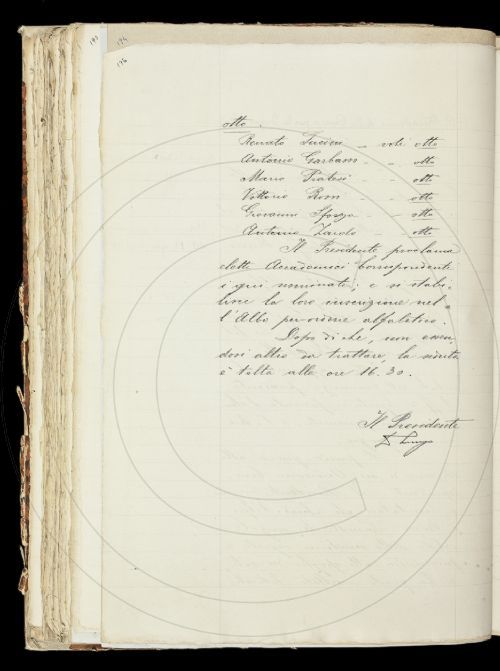 173
174
176
otto.
Renato Fucini — voti otto
Antonio Garbasso — - otto
Mario Pratesi - - otto
Vittorio Rossi - - otto
Giovanni Sforza - - otto
Antonio Zardo - - otto
Il Presidente proclama
eletti Accademici Corrispondenti
i qui nominati; e si stabi-
lisce la loro inscrizione nel-
l'Albo per ordine alfabetico.
Dopo di che, non essen-
dovi altro da trattare, la seduta
è tolta alle ore 16.30.
Il Presidente